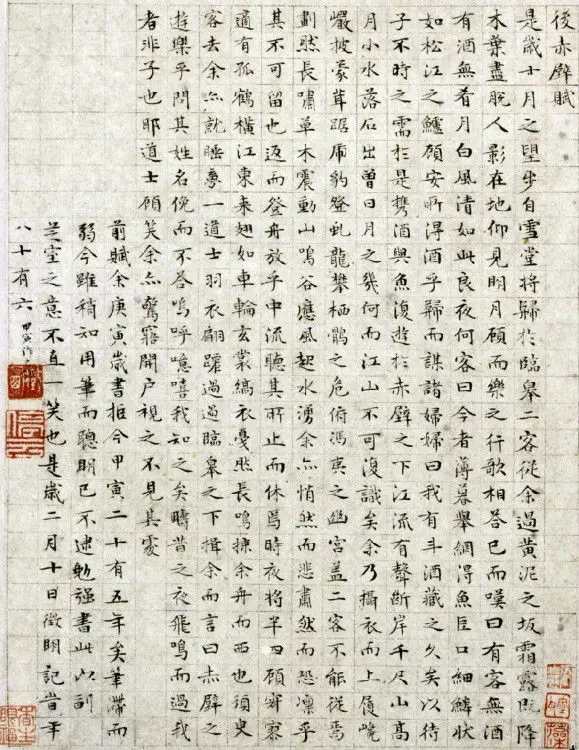 後赤壁賦
是歲十月之望步自雪堂將歸於臨皋二客從余過黃泥之坂霜露既降
木葉盡脫人影在地仰見明月顧而樂之行歌相答已而嘆曰有客無酒
有酒無肴月白風清如此良夜何客曰今者薄暮舉網得魚巨口細鱗狀
如松江之鱸顧安所得酒乎歸而謀諸婦婦曰我有斗酒藏之久矣以待
子不時之需於是攜酒與魚復遊於赤壁之下江流有聲斷岸千尺山高
月小水落石出曾日月之幾何而江山不可復識矣余乃攝衣而上履巉
巖披蒙茸踞虎豹登虬龍攀栖鶻之危俯馮夷之幽宮蓋二客不能從焉
劃然長嘯草木震動山鳴谷應風起水湧余亦悄然而悲肅然而恐凜乎
其不可留也返而登舟放乎中流聽其所止而休焉時夜將半四顧寂寥
適有孤鶴橫江東來翅如車輪玄裳縞衣戛然長鳴掠余舟而西也須臾
客去余亦就睡夢一道士羽衣翩躚過過臨皋之下揖余而言曰赤壁之
遊樂乎問其姓名俛而不答嗚呼噫嘻我知之矣疇昔之夜飛鳴而過我
者非子也耶道士顧笑余亦驚寤開戶視之不見其處
前賦余庚寅歲書距今甲寅二十有五年矣筆滯而
弱今雖稍知用筆而聰明已不逮勉強書此以副
芝室之意不直一笑也是歲二月十日徵明記時年
八十有六